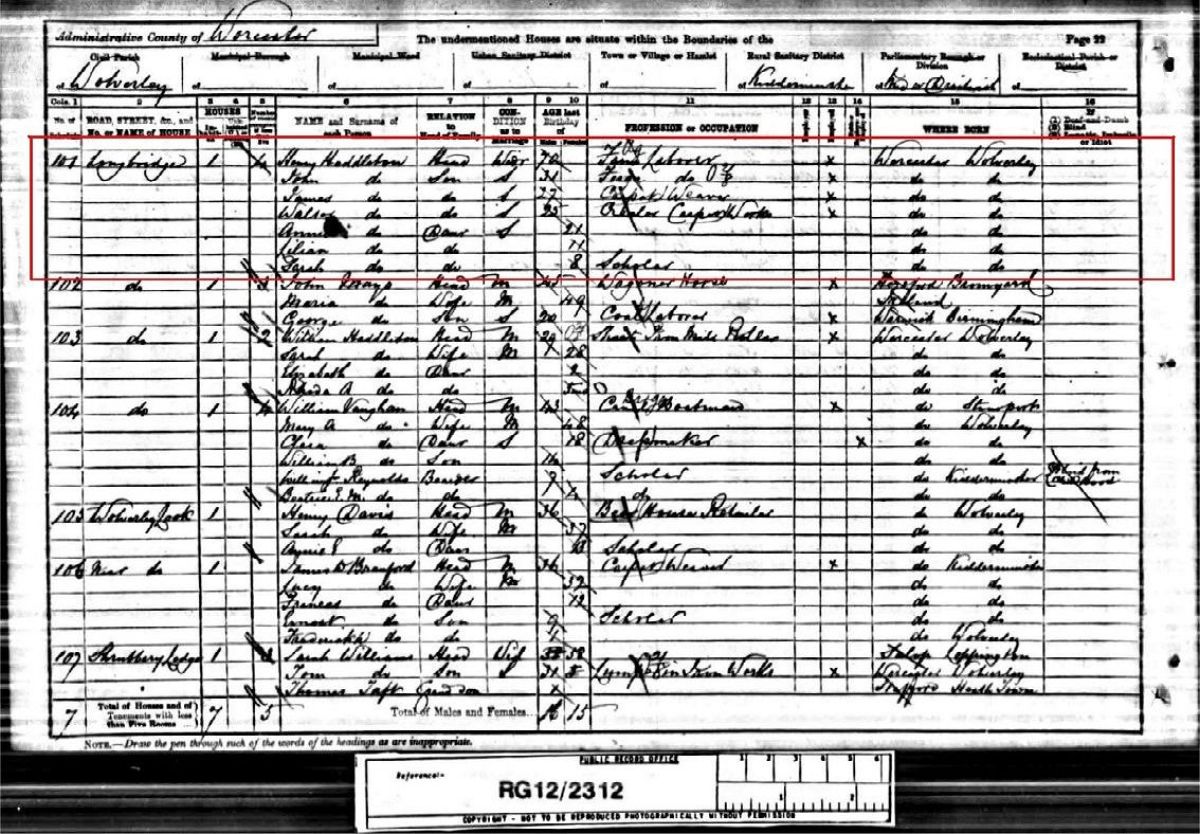 Administrative County of Worcester The undermentioned Houses are situate within the Boundaries of the Page 22
Civil Parish Municipal Borough Municipal Ward Urban Sanitary District Town or Village or Hamlet Rural Sanitary District Parliamentary Borough or Division Ecclesiastical Parish or District
of Wolverley of of of of of Kidderminster of of
Cols. 1 2 3 4 5 6 7 8 9 10 11 12 13 14 15 16
No. of ROAD, STREET, &c., and No. or NAME of HOUSE HOUSES NAME and Surname of each Person RELATION to Head of Family CONDITION as to Marriage AGE last Birthday of PROFESSION or OCCUPATION WHERE BORN (1) Deaf-and-Dumb (2) Blind or Idiot
101 Longbridge 1 4 Henry Haddleton Head Widr 70 Farm Laborer x Worcester Wolverley
John do Son S 31 do x do do
James do do S 27 Carpet Weaver x do do
Walter do do S 25 Carpet Works x do do
Annie do Daur S 21 do do
Lilian do do 11 do do
Sarah do do 8 Scholar do do
102 do 1 3 John Head M 45 Wagoner Horse x Hereford Bromyard
Maria do Wife M 49
George do Son S 20 Coal Laborer x Warwick Birmingham
103 do 1 2 William Haddleton Head M 29 Iron Mills x Worcester Wolverley
Sarah do Wife M 28 do do
Elizabeth do Daur 2 do do
A do do do do
104 do 1 4 William Vaughan Head M 43 Boatman x do Stourport
Mary A do Wife M 48 do Wolverley
Clara do Daur S 18 Dressmaker x do do
William B. do Son 14 do do
Reynolds Boarder 9 Scholar do Kidderminster Blind from Childhood
Beatrice E. M. do do 4 do do
105 Wolverley Lock 1 Henry Davis Head M 36 Beer House Retailer do Wolverley
Sarah do Wife M 37 do do
Annie E do Daur 13 Scholar do do
106 Near do 1 James D Head M 36 Carpet Weaver x do Kidderminster
Lucy do Wife M 32 do do
Frances do Daur 12 do do
Ernest do Son 9 Scholar do do
Frederick do do 1 do Wolverley
107 Shrubbery Lodge 1 3 Sarah Williams Head Wid 58 Salop Loppington
Tom do Son S 31 in Iron Works x Worcester Wolverley
Thomas Taft Grandson Heath Town
7 Total of Houses and of Tenements with less than Five Rooms 7 5 Total of Males and Females... 16 15
NOTE.—Draw the pen through such of the words of the headings as are inappropriate.
PUBLIC RECORD OFFICE
Reference:-
RG12/2312
1 2 3 4 5 6
1 2
COPYRIGHT - NOT TO BE REPRODUCED PHOTOGRAPHICALLY WITHOUT PERMISSION